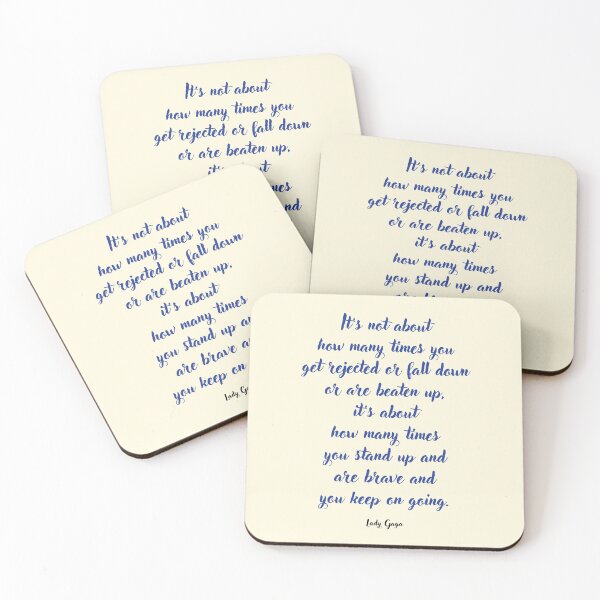 It's not about
how many times you
get rejected or fall down
or are beaten up,
it's about
times
and
It's not about
how many times you
get rejected or fall down
or are beaten up,
it's about
how many times
you stand up and
It's not about
how many times you
get rejected or fall down
or are beaten up,
it's about
how many times
you stand up
are brave
you keep on
Lady
It's not about
how many times you
get rejected or fall down
or are beaten up,
it's about
how many times
you stand up and
are brave and
you keep on going.
Lady Gaga